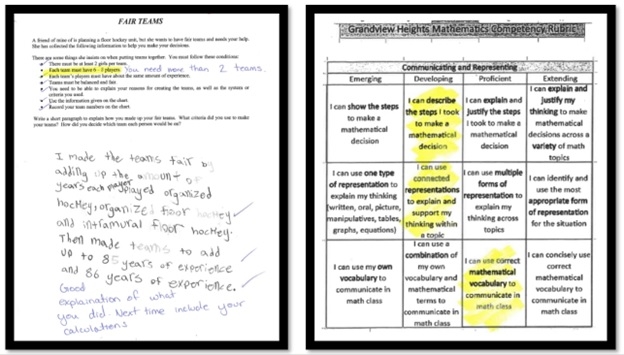 FAIR TEAMS
A friend of mine is planning a floor hockey unit, but she wants to have fair teams and needs your help.
She has collected the following information to help you make your decisions.
There are some things she insists on when putting teams together. You must follow these conditions:
There must be at least 2 girls per team.
Each team must have 6 - 7 players. You need more than 2 teams.
Each team's players must have about the same amount of experience.
Teams must be balanced and fair.
You need to be able to explain your reasons for creating the teams, as well as the system or
criteria you used.
Use the information given on the chart.
Record your team numbers on the chart.
Write a short paragraph to explain how you made up your fair teams. What criteria did you use to make
your teams? How did you decide which team each person would be on?
I made the teams fair by
adding up the amount of
years each player played organized
hockey, organized floor hockey
and intramural floor hockey.
Then made teams to add
up to 85 years of experience
and 86 years of experience.
Good
explaination of what
you did. Next time include your
calculations
Grandview Heights Mathematics Competency Rubric
Communicating and Representing
Emerging
Developing
Proficient
Extending
I can show the steps
to make a
mathematical
decision
I can describe
the steps I took
to make a
mathematical
decision
I can explain and
justify the steps
I took to make a
mathematical
decision
I can explain and
justify my
thinking to make
mathematical
decisions across a
variety of math
topics
I can use one type
of representation to
explain my thinking
(written, oral, picture,
manipulatives, tables,
graphs, equations)
I can use
connected
representations
to explain and
support my
thinking within
a topic
I can use multiple
forms of
representation to
explain my
thinking across
topics
I can identify and
use the most
appropriate form
of representation
for the situation
I can use my own
vocabulary to
communicate in
math class
I can use a
combination of
my own
vocabulary and
mathematical
terms to
communicate in
math class
I can use correct
mathematical
vocabulary to
communicate in
math class
I can concisely use
correct
mathematical
vocabulary to
communicate in
math class